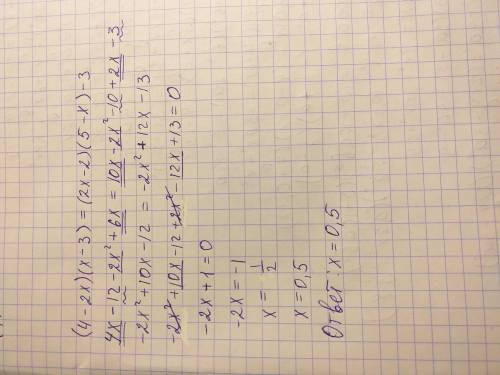 (4-2x)(x-3)=(2x-2)(5-x)-3
4x-12-2x²+6x=10x-2x²-10+2x-3
-2x²+10x-12=-2x²+12x-13
-2x²+10x-12+2x²-12x+13=0
-2x+1=0
-2x=-1
x=1/2
x=0,5
Ответ: x=0,5